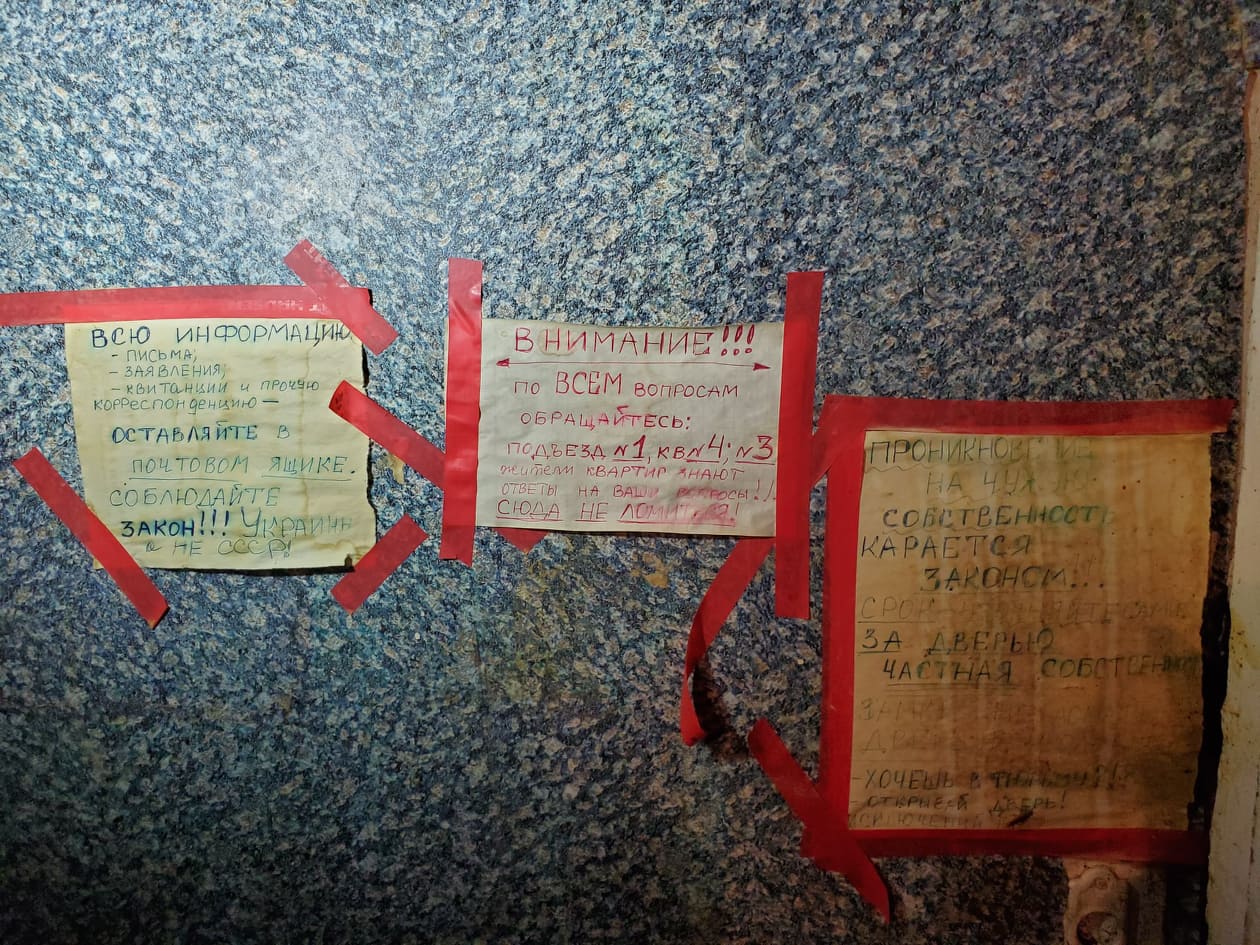 ВСЮ ИНФОРМАЦИЮ
- ПИСЬМА,
- ЗАЯВЛЕНИЯ,
- КВИТАНЦИИ И ПРОЧУЮ
КОРРЕСПОНДЕНЦИЮ —
ОСТАВЛЯЙТЕ В
ПОЧТОВОМ ЯЩИКЕ.
СОБЛЮДАЙТЕ
ЗАКОН!!! УКРАИНЫ
а НЕ СССР!
ВНИМАНИЕ!!!
ПО ВСЕМ ВОПРОСАМ
ОБРАЩАЙТЕСЬ:
ПОДЪЕЗД №1, КВ №4; №3
ЖИТЕЛИ КВАРТИР ЗНАЮТ
ОТВЕТЫ НА ВАШИ ВОПРОСЫ!!
СЮДА НЕ ЛОМИТЬСЯ!
ПРОНИКНОВЕНИЕ
НА ЧУЖУЮ
СОБСТВЕННОСТЬ
КАРАЕТСЯ
ЗАКОНОМ!..
СРОК
ЗА ДВЕРЬЮ
ЧАСТНАЯ СОБСТВЕННОСТЬ
- ХОЧЕШЬ В ТЮРЬМУ?!!
- ОТКРЫВАЙ ДВЕРЬ!